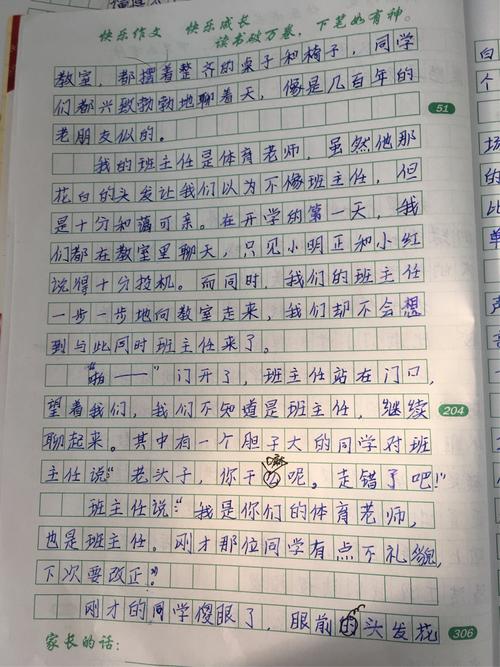 快乐作文 快乐成长
读书破万卷，下笔如有神。
教室，都摆着整齐的桌子和椅子，同学
们都兴致勃勃地聊着天，像是几百年的
老朋友似的。
51
我的班主任是体育老师，虽然他那
花白的头发让我们以为不像班主任，但
是十分和蔼可亲。在开学的第一天，我
们都在教室里聊天，只见小明正和小红
说得十分投机。而同时，我们的班主任
一步一步地向教室走来，我们却不会想
到与此同时班主任来了。
“啪——”门开了，班主任站在门口，
望着我们，我们不知道是班主任，继续
204
聊起来。其中有一个胆子大的同学对班
主任说：“老头子，你干嘛呢。走错了吧！”
班主任说：“我是你们的体育老师，
也是班主任。刚才那位同学有点不礼貌，
下次要改正？
刚才的同学傻眼了，眼前的头发花
家长的话：
306
白
个